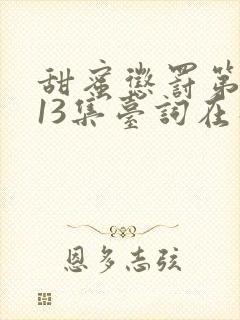 甜蜜懲罰第
13集臺詞在
恩多志弦